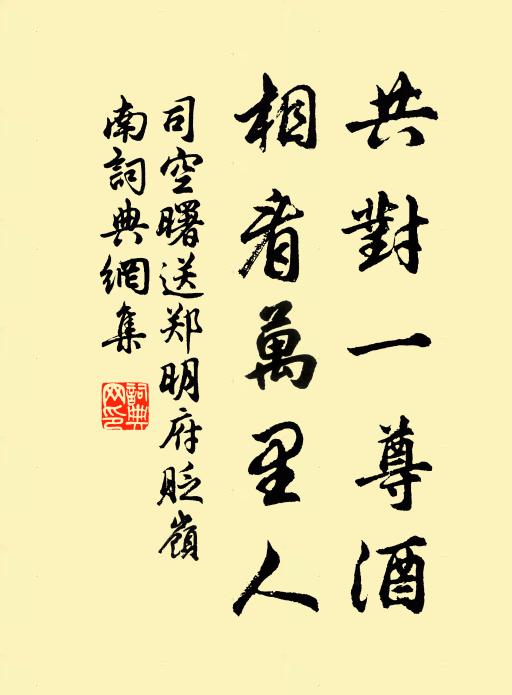 共對一尊酒
相看萬里人
司空曙送郑明府貶嶺
南詞典網集
詞典网印